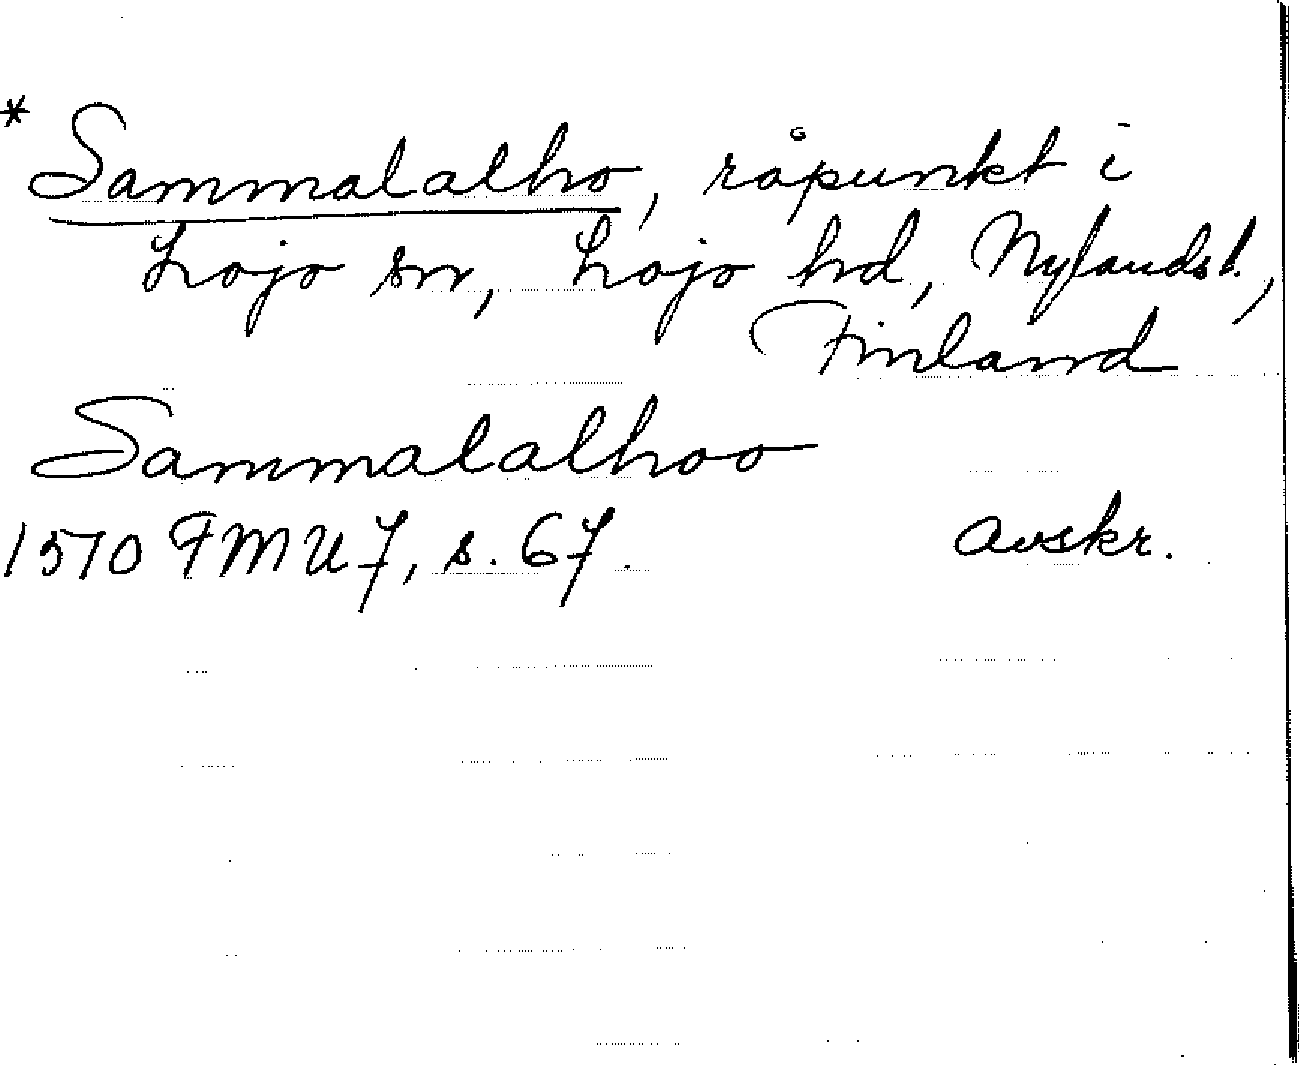 * Sammalalho, råpunkt i
Lojo sn, Lojo hd, Nylands l.,
Finland
Sammalalhoo
1570 FMU 7, s. 67. avskr.